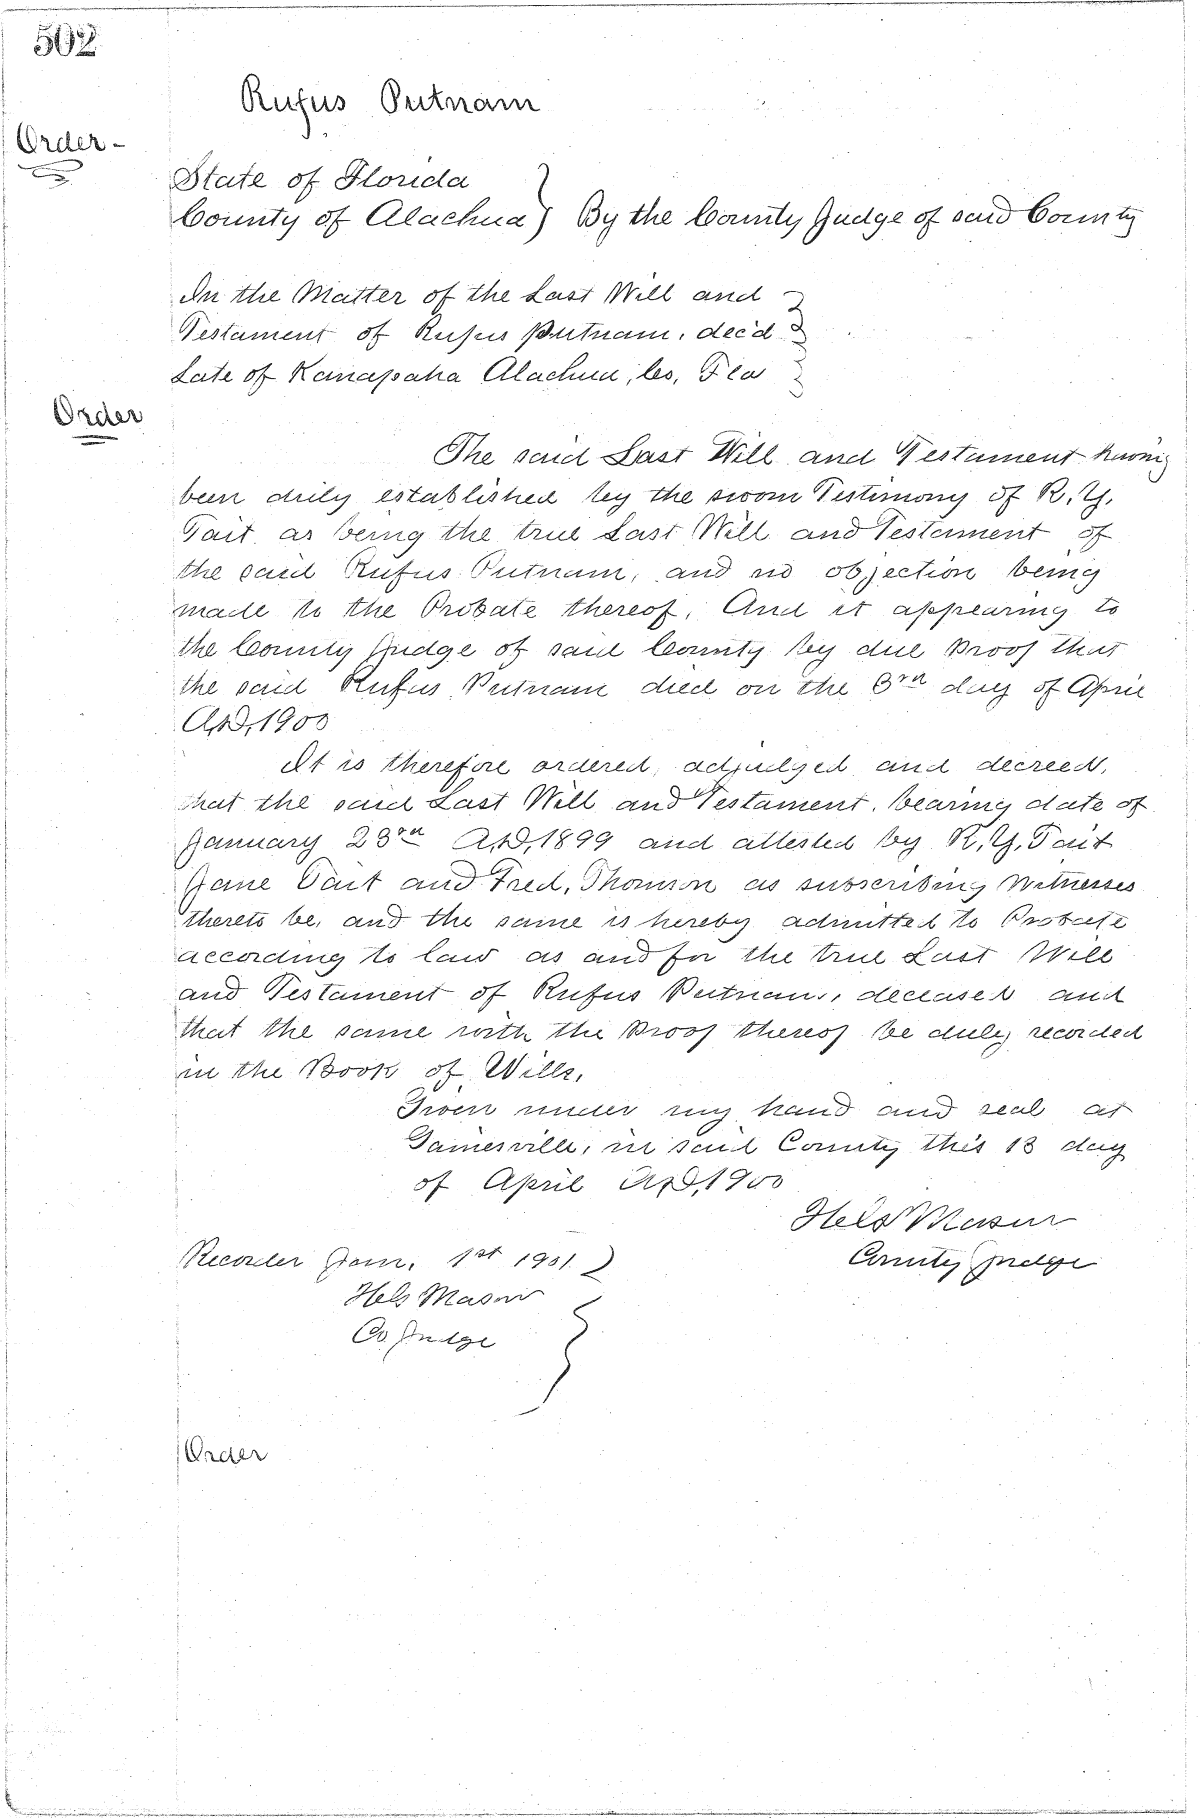 502
Rufus Putnam
Order -
State of Florida
County of Alachua } By the County Judge of said County
In the Matter of the Last Will and
Testament of Rufus Putnam, dec'd
Late of Kanapaha Alachua, Co, Fla
Order
The said Last Will and Testament having
been duly established by the sworn Testimony of R. Y.
Tait as being the true Last Will and Testament of
the said Rufus Putnam, and no objection being
made to the Probate thereof, And it appearing to
the County Judge of said County by due Proof that
the said Rufus Putnam died on the 3rd day of April
A.D, 1900
It is therefore ordered, adjudged and decreed,
that the said Last Will and Testament, bearing date of
January 23rd A.D, 1899 and attested by R. Y. Tait
Jane Tait and Fred, Thomson as subscribing Witnesses
thereto be, and the same is hereby admitted to Probate
according to law as and for the true Last Will
and Testament of Rufus Putnam, deceased and
that the same with the Proof thereof be duly recorded
in the Book of Wills,
Given under my hand and seal at
Gainesville, in said County this 13 day
of April A.D, 1900
Mason
County Judge
Recorded Jan, 1st 1901
Mason
Co Judge
Order